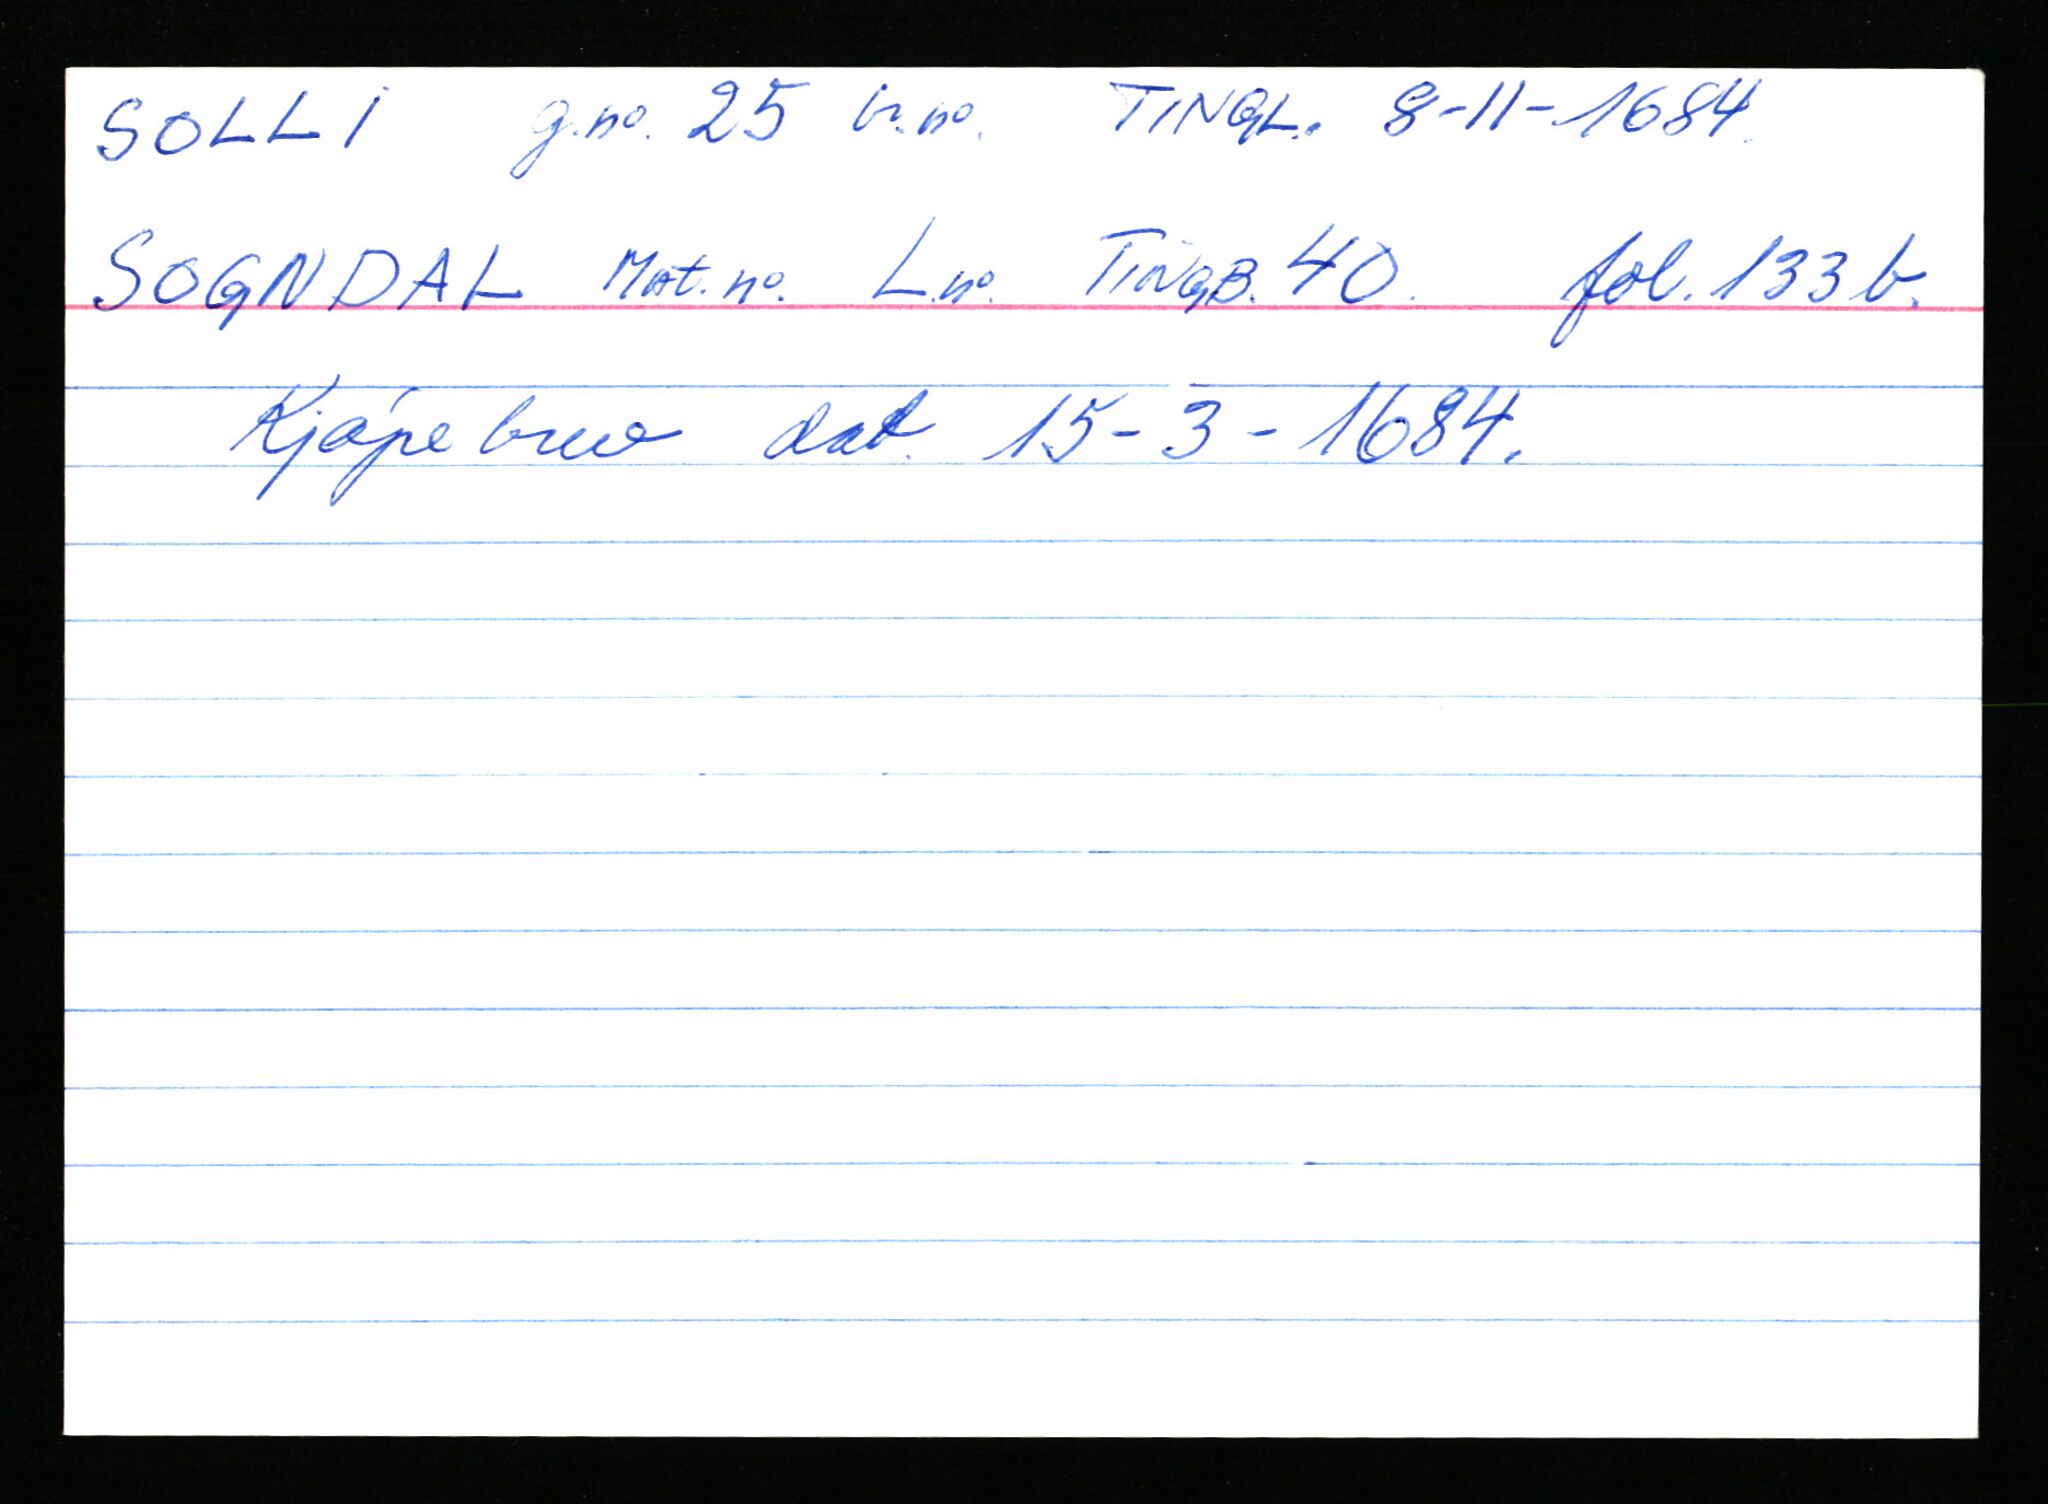 SOLLI g.no. 25 br.no. TINGL. 8-11-1684.
SOGNDAL Mat.no. L.no. TINGB. 40. fol. 133 b.
Kjøpebrev dat. 15-3-1684.